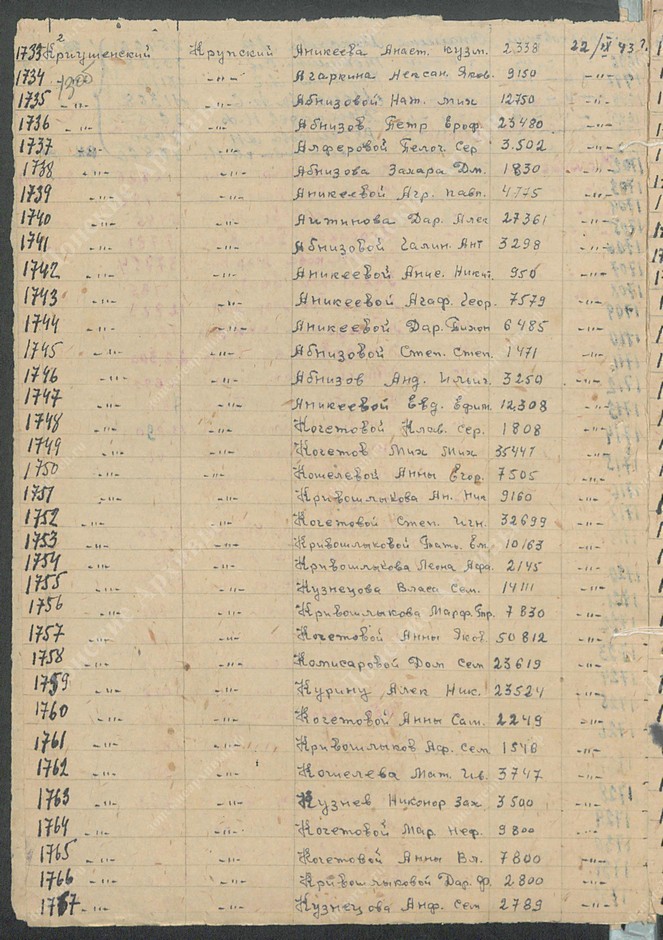 1733 Кривушенский Крупский Аникеева Анаст. Кузм. 2.338 22/IX 43 г.
1734 -"- Агаркина Яков. 9150 -"-
1735 -"- Абнизовой Нат. Мих 12750 -"-
1736 -"- -"- Абнизов Петр Ероф. 23480 -"-
1737 -"- Алферовой Пелог. Сер 3.502 -"-
1738 -"- -"- Абнизова Захара Дм. 1830 -"-
1739 -"- -"- Аникеевой Агр. Павл. 4775 -"-
1740 -"- -"- Дар. Алек 27361 -"-
1741 -"- -"- Абнизовой Галин. Ант 3298 -"-
1742 -"- -"- Аникеевой Анис. Никит. 950 -"-
1743 -"- -"- Аникеевой Агаф. Геор. 7579 -"-
1744 -"- -"- Аникеевой Дар. 6485 -"-
1745 -"- -"- Абнизовой Степ. Степ. 1471 -"-
1746 -"- -"- Абнизов Анд. 3250 -"-
1747 -"- -"- Аникеевой Евд. Ефим. 12.308 -"-
1748 -"- -"- Кочетовой Клав. Сер. 1808 -"-
1749 -"- -"- Кочетов Мих Мих 35447 -"-
1750 -"- -"- Кошелевой Анны Егор. 7505 -"-
1751 -"- -"- Кривошлыкова Ан. Ник 9160 -"-
1752 -"- -"- Кочетовой Степ. Игн. 32699 -"-
1753 -"- -"- Кривошлыковой Тать. Ем. 10163 -"-
1754 -"- -"- Кривошлыкова Леона Афа. 2145 -"-
1755 -"- -"- Кузнецова Власа Сем. 14111 -"-
1756 -"- -"- Кривошлыкова Марф. Гр. 7830 -"-
1757 -"- -"- Кочетовой Анны Яков 50812 -"-
1758 -"- -"- Комисаровой Дом Сем 23619 -"-
1759 -"- -"- Курину Алек Ник. 23524 -"-
1760 -"- -"- Кочетовой Анны Сам. 2249 -"-
1761 -"- -"- Кривошлыков Аф. Сем 1548 -"-
1762 -"- -"- Кошелева Мат. Ив. 3747 -"-
1763 -"- -"- Кузнев Никонор Зах. 3500 -"-
1764 -"- -"- Кочетовой Мар Неф. 9800 -"-
1765 -"- -"- Кочетовой Анны Вл. 7800 -"-
1766 -"- -"- Кривошлыковой Дар. Ф. 2.800 -"-
1767 -"- -"- Кузнецова Анф. Сем 2789 -"-